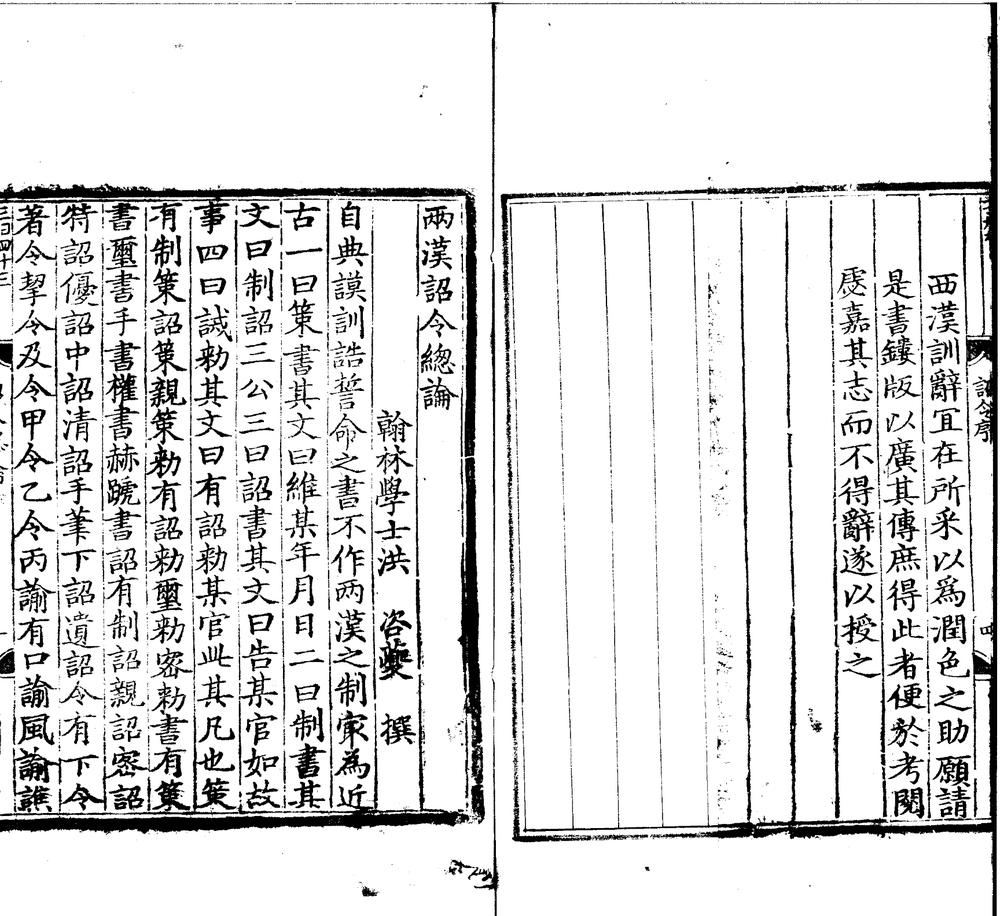 西漢訓辭冝在所采以爲潤色之助願請
是書鏤版以廣其傳庶得此者便於考閱
處嘉其志而不得辭遂以授之
詔令序
兩漢詔令總論
翰林學士洪 咨夔 撰
自典謨訓誥誓命之書不作兩漢之制家為近
古一曰策書其文曰維某年月日二曰制書其
文曰制詔三公三曰詔書其文曰告某官如故
事四曰誡勑其文曰有詔勑某官此其凡也策
有制策詔策親策勑有詔勑璽勑密勑書有策
書璽書手書權書赫蹏書詔有制詔親詔密詔
特詔優詔中詔清詔手筆下詔遺詔令有下令
著令挈令及令甲令乙令丙諭有口諭風諭譙